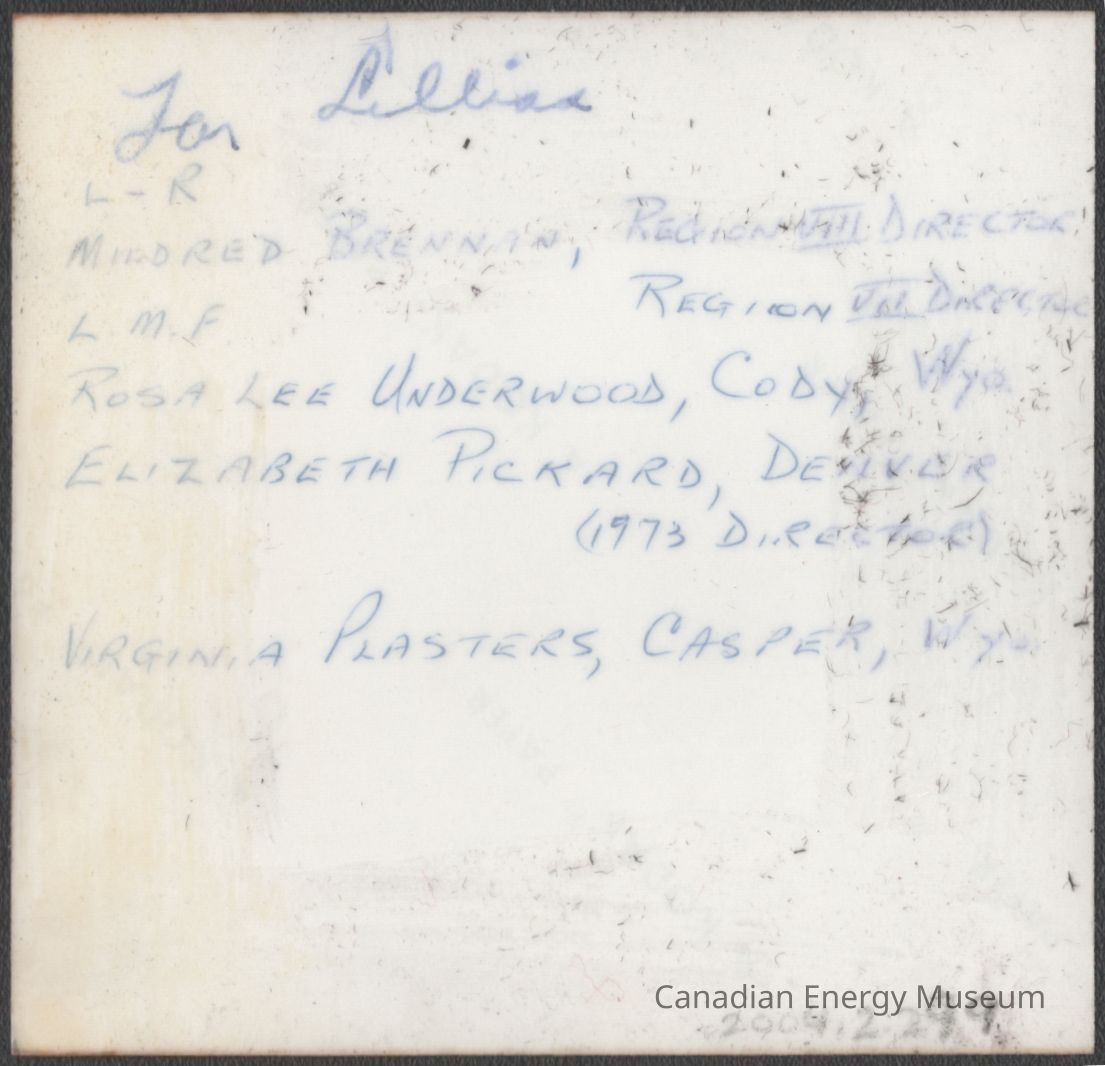 For Lillian
L-R
MILDRED BRENNAN, REGION VIII DIRECTOR
L M. F REGION DIRECTOR
ROSA LEE UNDERWOOD, CODY, Wyo.
ELIZABETH PICKARD, DENVER
(1973 DIRECTOR)
VIRGINIA PLASTERS, CASPER, Wyo.
Canadian Energy Museum